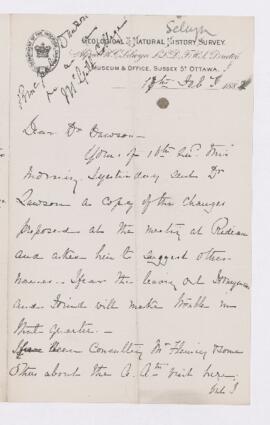 Selwyn
GEOLOGICAL & NATURAL HISTORY SURVEY.
Alfred R. C. Selwyn L.L.D. F.R.S. Director
MUSEUM & OFFICE, SUSSEX ST OTTAWA.
Princ. Dawson
McGill College
17th Feby 1882
Dear Dr Dawson
Yours of 16th Recd this
morning. Yesterday sent Dr
Lawson a copy of the changes
proposed at the meeting at
and asked him to suggest other
names. I fear the leaving out Honeyman
and Hind will make trouble in
that quarter.
Consulting Mr Fleming & some
others about the A. Assn visit here.
but I